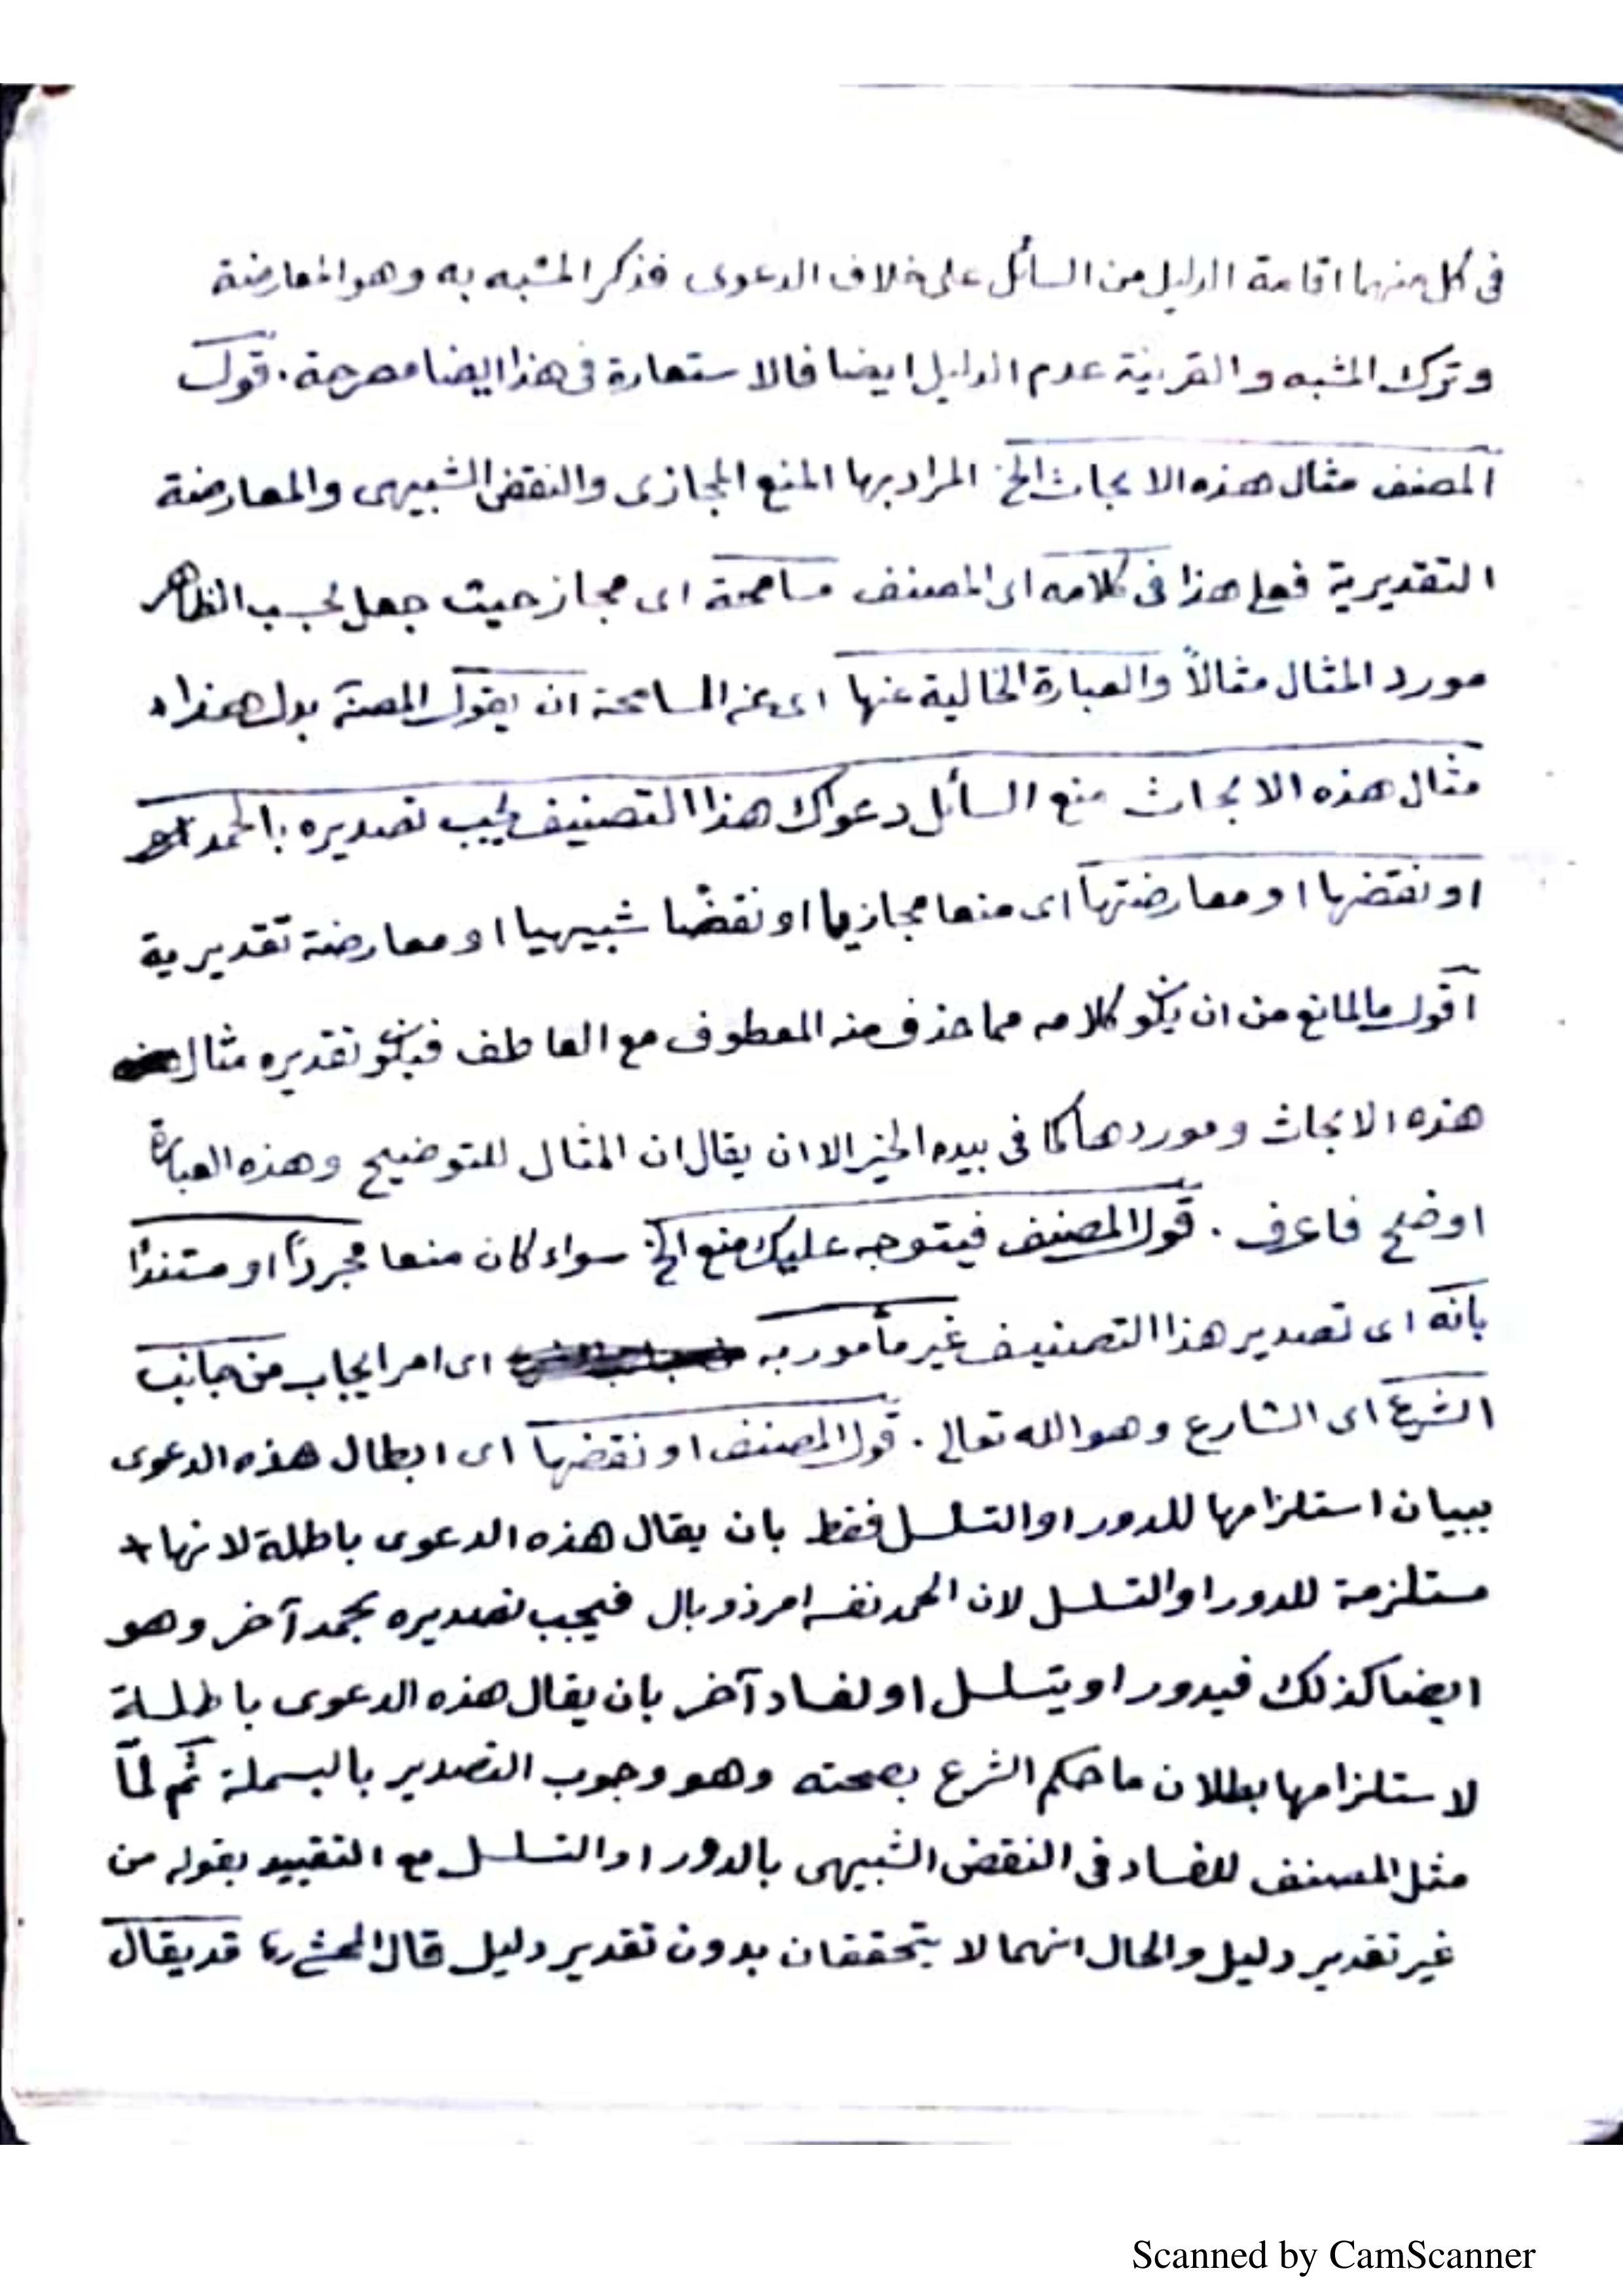 فى كل منهما اقامة الدليل من السائل على خلاف الدعوى فذكر المشبه به وهو المعارضة
وترك المشبه والقرينة عدم الدليل ايضا فالاستعارة فى هذا ايضا مصرحة. قول
المصنف مثال هذه الابحاث الخ المراد بها المنع المجازى والنقض الشبيهى والمعارضة
التقديرية فعلى هذا فى كلامه اى المصنف مسامحة اى مجاز حيث جعل بحسب الظاهر
مورد المثال مثالاً والعبارة الخالية عنها اى عن المسامحة ان يقول المصـ بدل هذا
مثال هذه الابحاث منع السائل دعواك هذا التصنيف يجب تصديره بالحمد
او نقضها او معارضتها اى منعا مجازيا او نقضًا شبيهيا او معارضة تقديرية
اقول ما المانع من ان يكون كلامه مما حذف منه المعطوف مع العاطف فيكون تقديره مثال
هذه الابحاث وموردها كما فى بيده الخير الا ان يقال ان المثال للتوضيح وهذه العبارة
اوضح فاعرف. قول المصنف فيتوجه عليك منع الخ سواء كان منعا مجردًا او مستندًا
بانه اى تصدير هذا التصنيف غير مأمور به اى امر ايجاب من جانب
الشرع اى الشارع وهو الله تعالى. قول المصنف او نقضها اى ابطال هذه الدعوى
ببيان استلزامها للدور او التسلسل فقط بان يقال هذه الدعوى باطلة لانها
مستلزمة للدور او التسلسل لان الحمد نفسه امر ذو بال فيجب تصديره بحمد آخر وهو
ايضا كذلك فيدور او يتسلسل او لفساد آخر بان يقال هذه الدعوى باطلة
لاستلزامها بطلان ما حكم الشرع بصحته وهو وجوب التصدير بالبسملة ثم لمّا
مثل المصنف للفساد فى النقض الشبيهى بالدور او التسلسل مع التقييد بقوله من
غير تقدير دليل والحال انهما لا يتحققان بدون تقدير دليل قال المحشى قد يقال
Scanned by CamScanner